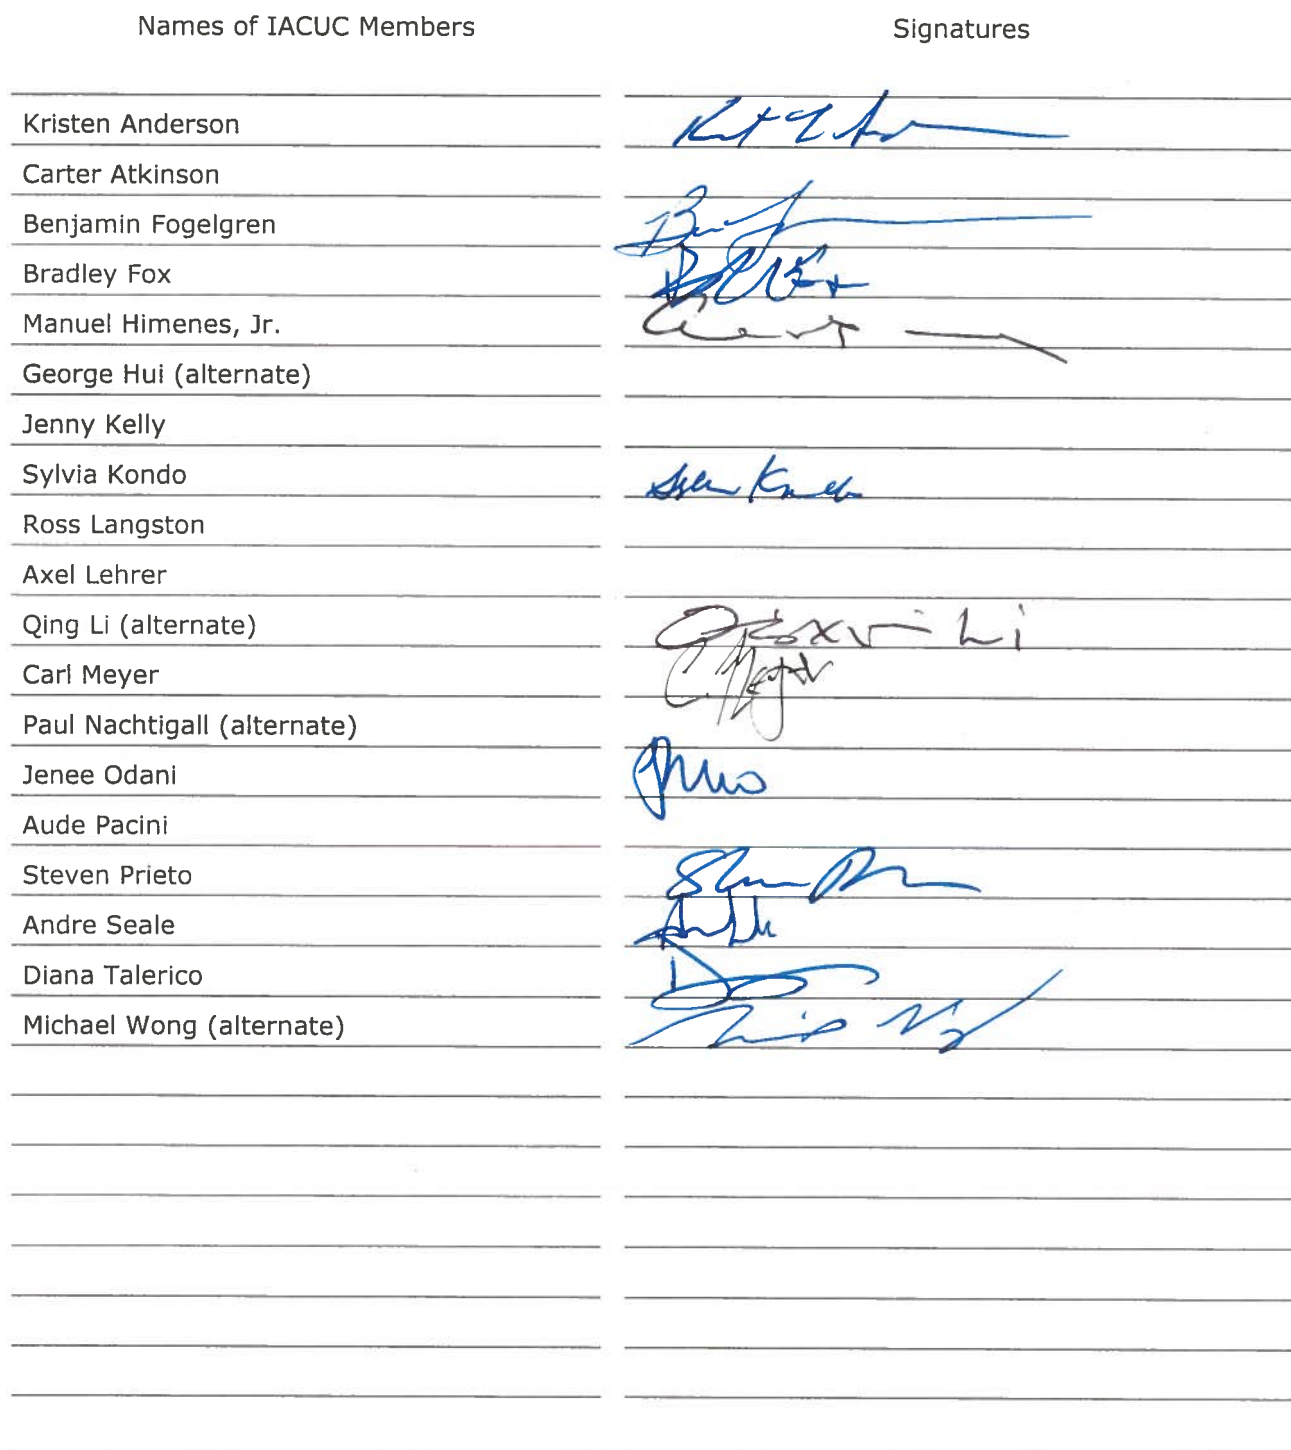 Names of IACUC Members Signatures
Kristen Anderson
Carter Atkinson
Benjamin Fogelgren
Bradley Fox
Manuel Himenes, Jr.
George Hui (alternate)
Jenny Kelly
Sylvia Kondo
Ross Langston
Axel Lehrer
Qing Li (alternate) Li
Carl Meyer
Paul Nachtigall (alternate)
Jenee Odani
Aude Pacini
Steven Prieto
Andre Seale
Diana Talerico
Michael Wong (alternate)